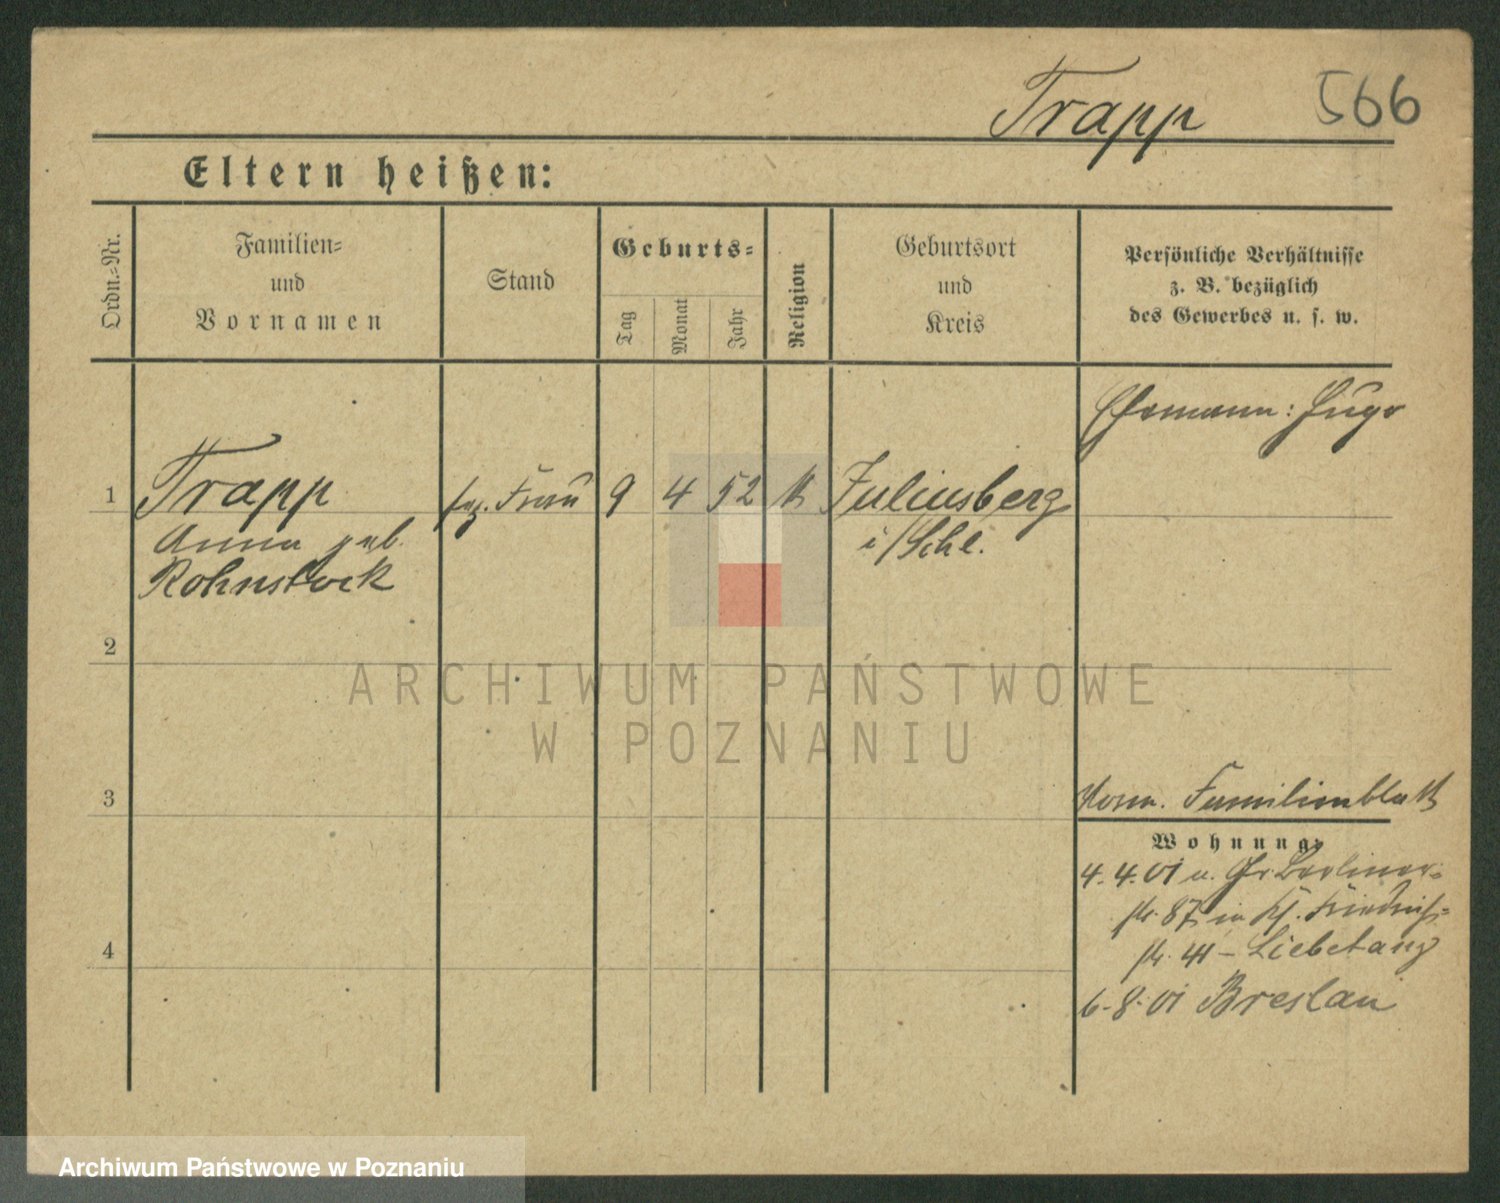 Trapp 566
Eltern heißen:
Ordn.=Nr.
Familien=
und
Vornamen
Stand
Geburts=
Tag
Monat
Jahr
Religion
Geburtsort
und
Kreis
Persönliche Verhältnisse
z. B. bezüglich
des Gewerbes u. s. w.
Ehemann: Hugo
1 Trapp Frau 9 4 52 k Juliusberg
Anna geb. i/Schl.
Rohnstock
2
3
Familienblatt
Wohnung:
4. 4. 01 v. Gr. Berliner=
str. 87 in Friedrich=
str. – Liebetanz
4
6. 8. 01 Breslau
ARCHIWUM PAŃSTWOWE
W POZNANIU
Archiwum Państwowe w Poznaniu